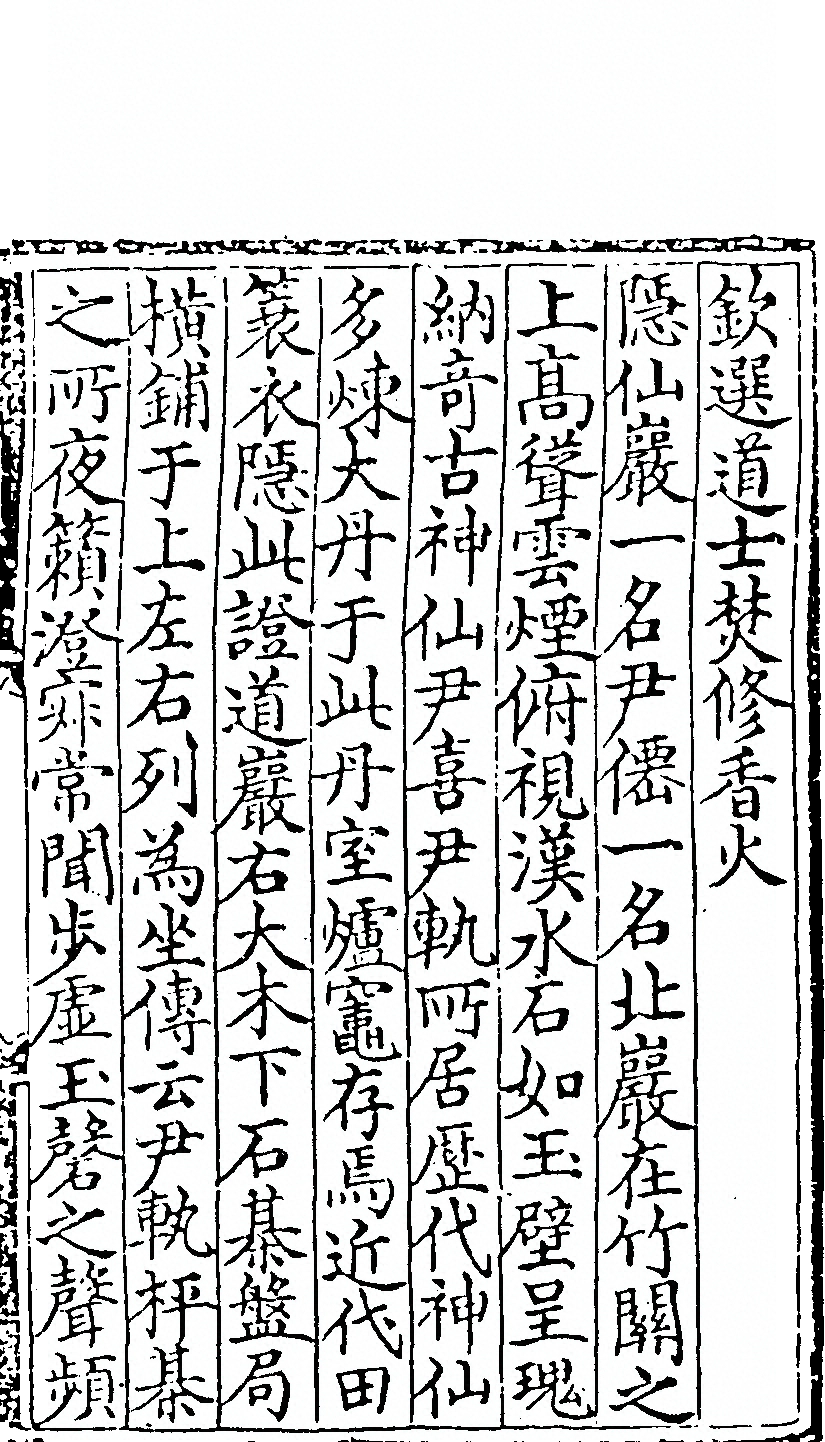 欽選道士焚修香火
隱仙巖一名尹僊一名北巖在竹關之
上高聳雲煙俯視漢水石如玉壁呈瑰
納竒古神仙尹喜尹軌所居歷代神仙
多煉大丹于此丹室爐竈存焉近代田
蓑衣隱此證道巖右大木下石棊盤局
横鋪于上左右列為坐傳云尹執枰棊
之所夜籟澄寂常聞步虛玉磬之聲頻